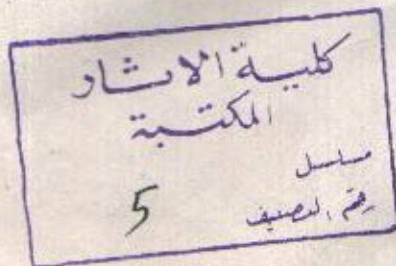 كلية الاثار
المكتبة
مسلسل
رقم التصنيف
5